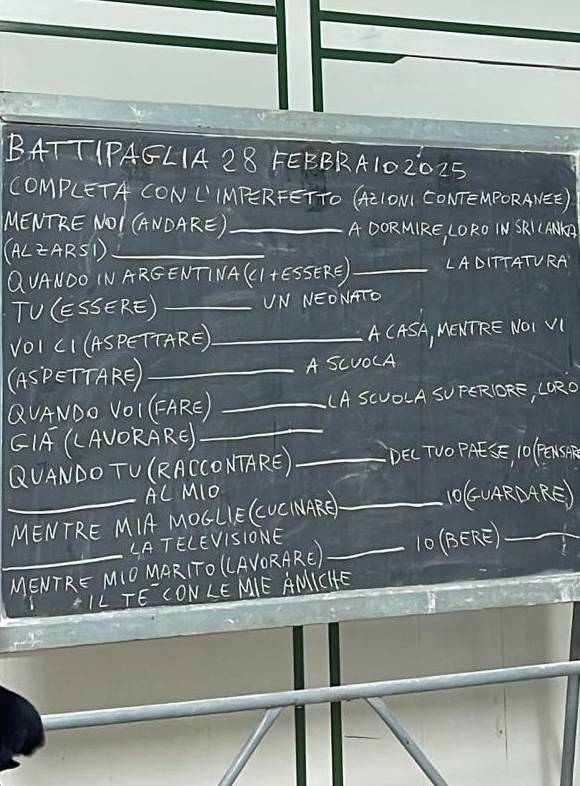 BATTIPAGLIA 28 FEBBRAIO 2025
COMPLETA CON L'IMPERFETTO (AZIONI CONTEMPORANEE)
MENTRE NOI (ANDARE) ________ A DORMIRE, LORO IN SRI LANKA
(ALZARSI) ________
QUANDO IN ARGENTINA (CI+ESSERE) ________ LA DITTATURA
TU (ESSERE) ________ UN NEONATO
VOI CI (ASPETTARE) ________ A CASA, MENTRE NOI VI
(ASPETTARE) ________ A SCUOLA
QUANDO VOI (FARE) ________ LA SCUOLA SUPERIORE, LORO
GIÀ (LAVORARE) ________
QUANDO TU (RACCONTARE) ________ DEL TUO PAESE, IO (PENSARE
________ AL MIO
MENTRE MIA MOGLIE (CUCINARE) ________ IO (GUARDARE)
________ LA TELEVISIONE
MENTRE MIO MARITO (LAVORARE) ________ IO (BERE) ________
IL TE CON LE MIE AMICHE